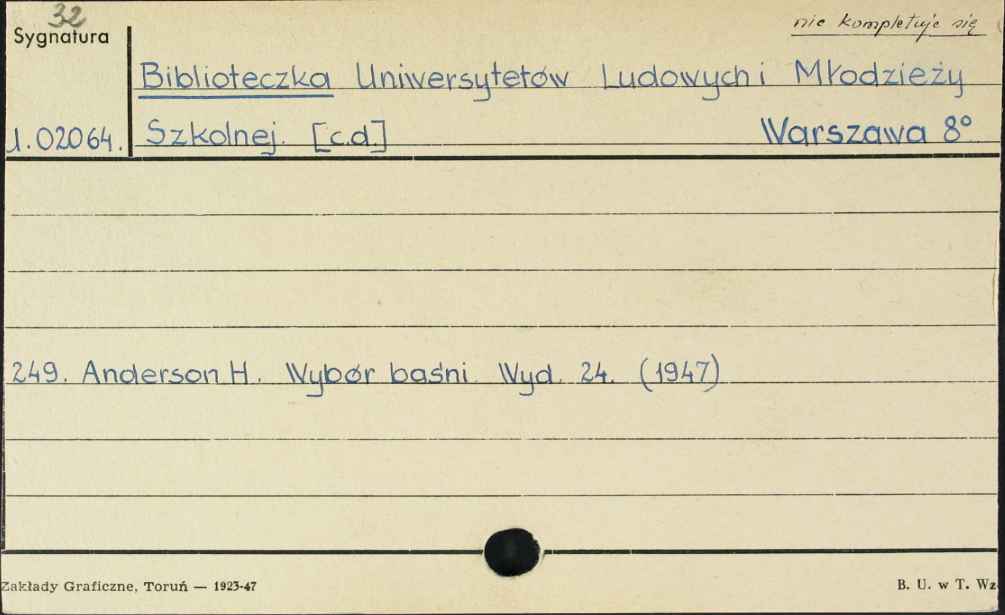 32
nie kompletuje się
Sygnatura
Biblioteczka Uniwersytetów Ludowych i Młodzieży
1.02064. Szkolnej. [c.d.] Warszawa 8°
249. Anderson H. Wybór baśni. Wyd. 24. (1947)
Zakłady Graficzne, Toruń — 1923-47
B. U. w T. Wz